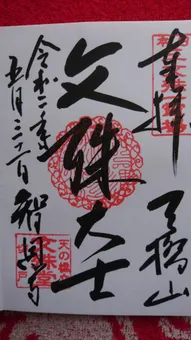 奉拝
天橋山
文殊大士
令和二年
五月三十日 智恩寺
天の橋立
文殊堂